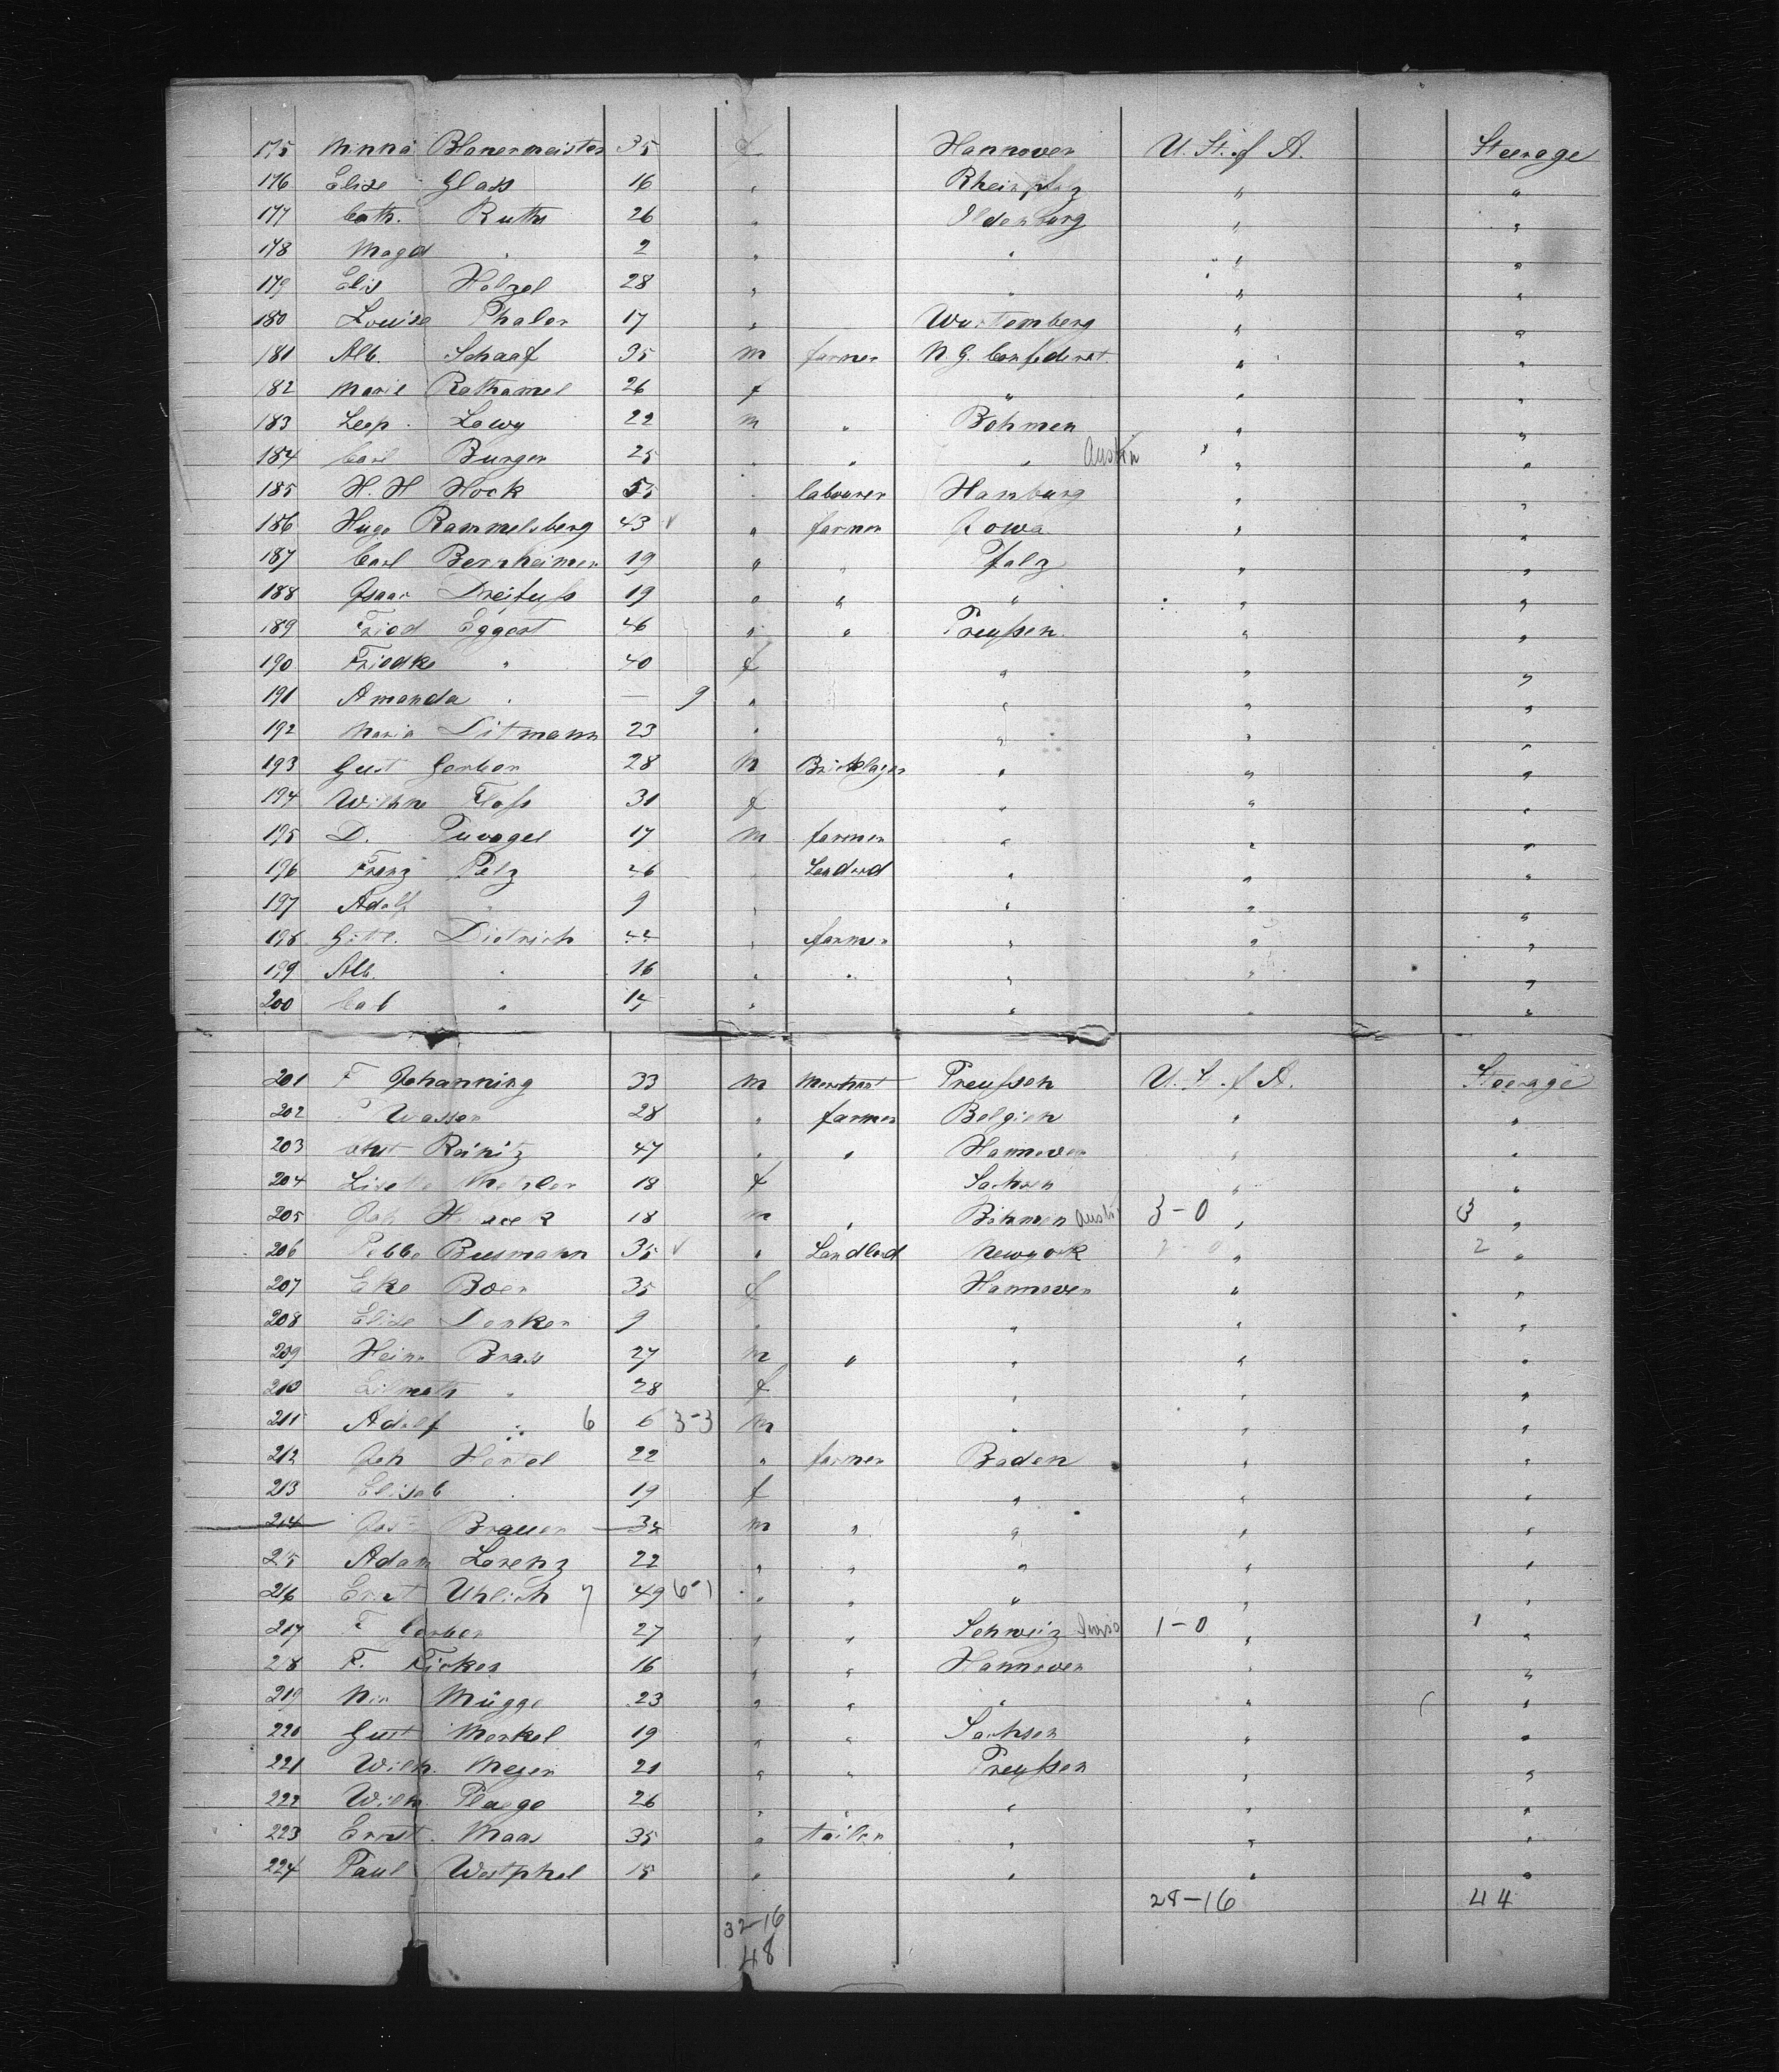 175 Minna Blanermeister 35 f Hannover U. St. of A. Steerage
176 Elise Glass 16 " Rheinpfalz " "
177 Cath. Ruths 26 " Oldenburg " "
178 Magd " 2 " " " "
179 Elis Holzel 28 " " " "
180 Louise Phaler 17 " Wurtemberg " "
181 Alb. Schaaf 35 m farmer N. G. Confederat. " "
182 Marie Rathamel 26 f " " "
183 Leop. Lowy 22 m " Bohmen " "
184 Carl Burger 25 " " " Austria " "
185 H. H Hock 55 " labourer Hamburg " "
186 Hugo Rammelsberg 43 v " farmer Iowa " "
187 Carl Bernheimer 19 " " Pfalz " "
188 Isaac Dreifuss 19 " " " " "
189 Fried Eggert 46 " " Preussen " "
190 Friedke " 40 f " " "
191 Amanda " — 9 " " " "
192 Maria Litmann 23 " " " "
193 Gust Gerber 28 m Bricklayer " " "
194 Wilhne Floss 31 f " " "
195 D. Tuvogel 17 m farmer " " "
196 Franz Pelz 46 " Landlord " " "
197 Adolf " 9 " " " "
198 Gottl. Dietrich 44 " farmer " " "
199 Alb. " 16 " " " " "
200 Carl " 14 " " " "
201 F Johanning 33 m Merchant Preussen U. St. of A. Steerage
202 Wasser 28 " farmer Belgien " "
203 Reinitz 47 " " Hannover " "
204 Lisette Metzler 18 f Sachsen " "
205 Joh 18 m " Böhmen Austr 3-0 " 3 "
206 Pebbo Busmann 35 v " Landlord Newyork " 2 "
207 Eke Boer 35 f Hannover " "
208 Elise Donker 9 " " " "
209 Heinr Brass 27 m " " " "
210 " 28 f " " "
211 Adolf " 6 6 3-3 m " " "
212 Joh Hertel 22 " farmer Baden " "
213 Elisab " 19 f " " "
214 Brauer 34 m " " " "
215 Adam Lorenz 22 " " " " "
216 Ernst Uhlich 7 49 6-1 " " " " "
217 F Gerber 27 " " Schweiz Swiss 1-0 " 1 "
218 F. Ficker 16 " " Hannover " "
219 Mügge 23 " " " " "
220 Gust Merkel 19 " " Sachsen " "
221 Wilh. Meyer 21 " " Preussen " "
222 Wilh. Plaege 26 " " " " "
223 Ernst Maas 35 " tailor " " "
224 Paul Westphal 18 " " " "
28-16 44
32-16
48